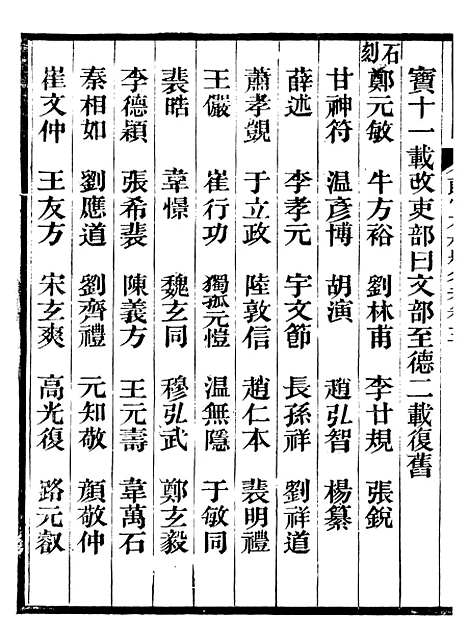 寶十一載改吏部曰文部至德二載復舊
石刻
鄭元敏 牛方裕 劉林甫 李廿規 張銳
甘神符 温彥博 胡演 趙弘智 楊纂
薛述 李孝元 宇文節 長孫祥 劉祥道
蕭孝覬 于立政 陸敦信 趙仁本 裴明禮
王儼 崔行功 獨孤元愷 温無隱 于敏同
裴晧 韋憬 魏玄同 穆弘武 鄭玄毅
李德穎 張希裴 陳義方 王元壽 韋萬石
秦相如 劉應道 劉齊禮 元知敬 顏敬仲
崔文仲 王友方 宋玄爽 高光復 路元叡